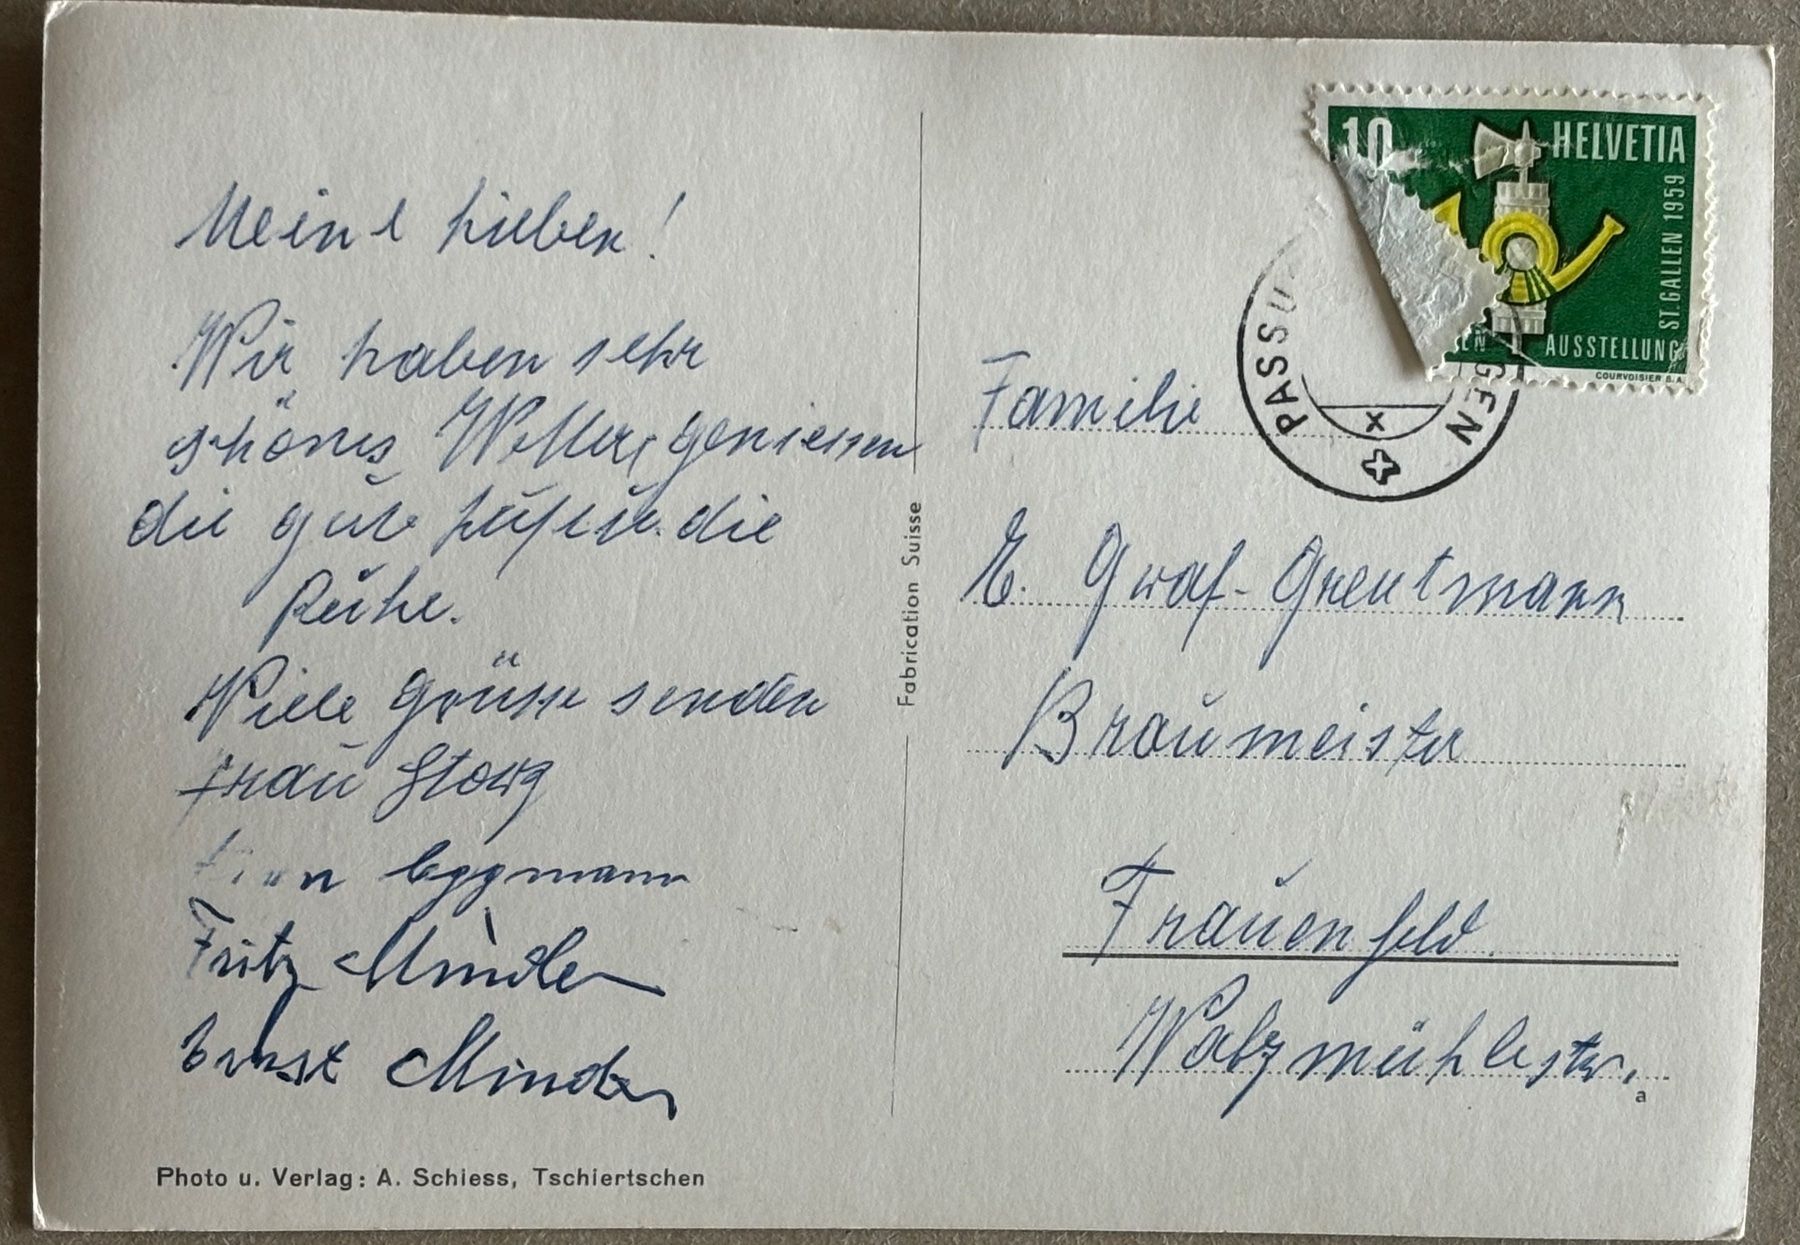 Meine Lieben!
Wir haben sehr
schönes Wetter, geniessen
die gute Luft u. die
Ruhe.
Viele Grüsse senden
Frau Storz
Eggmann
Fritz Minder
Ernst Minder
Photo u. Verlag: A. Schiess, Tschiertschen
Fabrication Suisse
10 HELVETIA
ST. GALLEN 1959
AUSSTELLUNG
COURVOISIER S.A.
PASSUGG
GEN
X
Familie
E. Graf-Greutmann
Braumeister
Frauenfeld
Walzmühlestr.
a